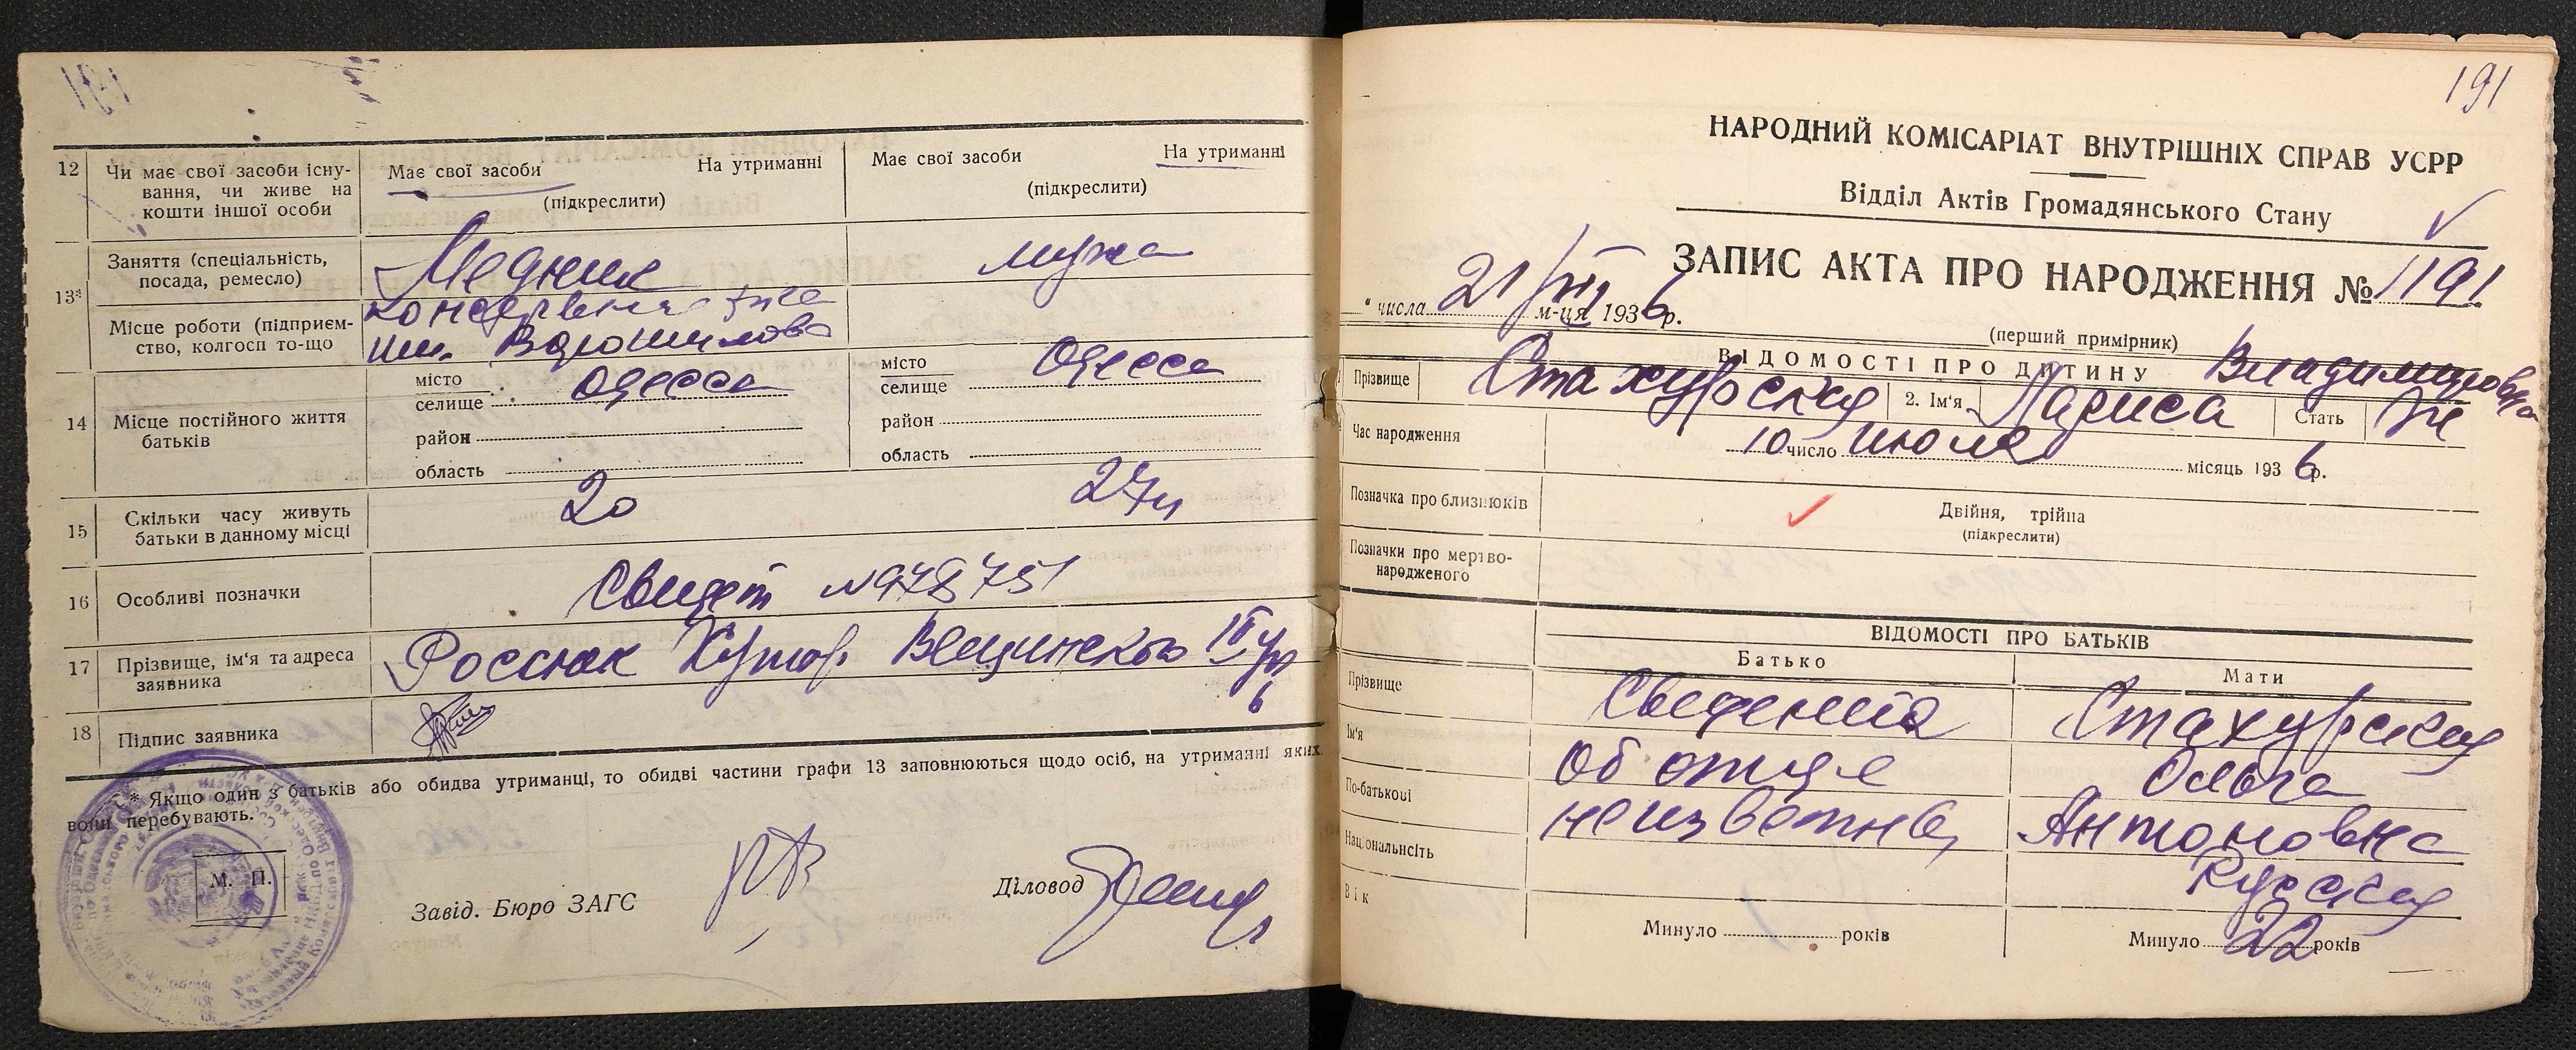 12
Чи має свої засоби існу-
вання, чи живе на
кошти іншої особи
Має свої засоби На утриманні
(підкреслити)
Має свої засоби На утриманні
(підкреслити)
13*
Заняття (спеціальність,
посада, ремесло)
Медник
мужа
Місце роботи (підприєм-
ство, колгосп то-що
консервный
им. Ворошилова
14
Місце постійного життя
батьків
місто Одесса
селище
район
область
місто Одесса
селище
район
область
15
Скільки часу живуть
батьки в данному місці
20
16
Особливі позначки
Свидет №978751
17
Прізвище, ім‘я та адреса
заявника
Россюк Хутор.
18
Підпис заявника
* Якщо один з батьків або обидва утриманці, то обидві частини графи 13 заповнюються щодо осіб, на утриманні яких
вони перебувають.
М. П.
Завід. Бюро ЗАГС
Діловод
191
НАРОДНИЙ КОМІСАРІАТ ВНУТРІШНІХ СПРАВ УСРР
Відділ Актів Громадянського Стану
ЗАПИС АКТА ПРО НАРОДЖЕННЯ № 1191
" числа 21/VII м-ця 1936 р.
(перший примірник)
ВІДОМОСТІ ПРО ДИТИНУ
Владимировна
Прізвище Стахурская 2. Ім‘я Лариса Стать Ж
Час народження 10 число Июля місяць 1936 р.
Позначка про близнюків
Двійня, трійпа
(підкреслити)
Позначки про мертво-
народженого
ВІДОМОСТІ ПРО БАТЬКІВ
Батько Мати
Прізвище Сведения Стахурская
Ім‘я об отце Ольга
По-батькові неизвестны Антоновна
Національність Русская
Вік Минуло років Минуло 22 років